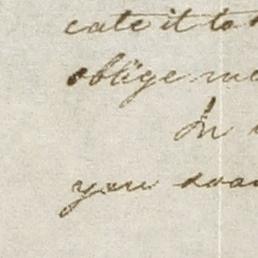 cate it to
oblige me
In
you